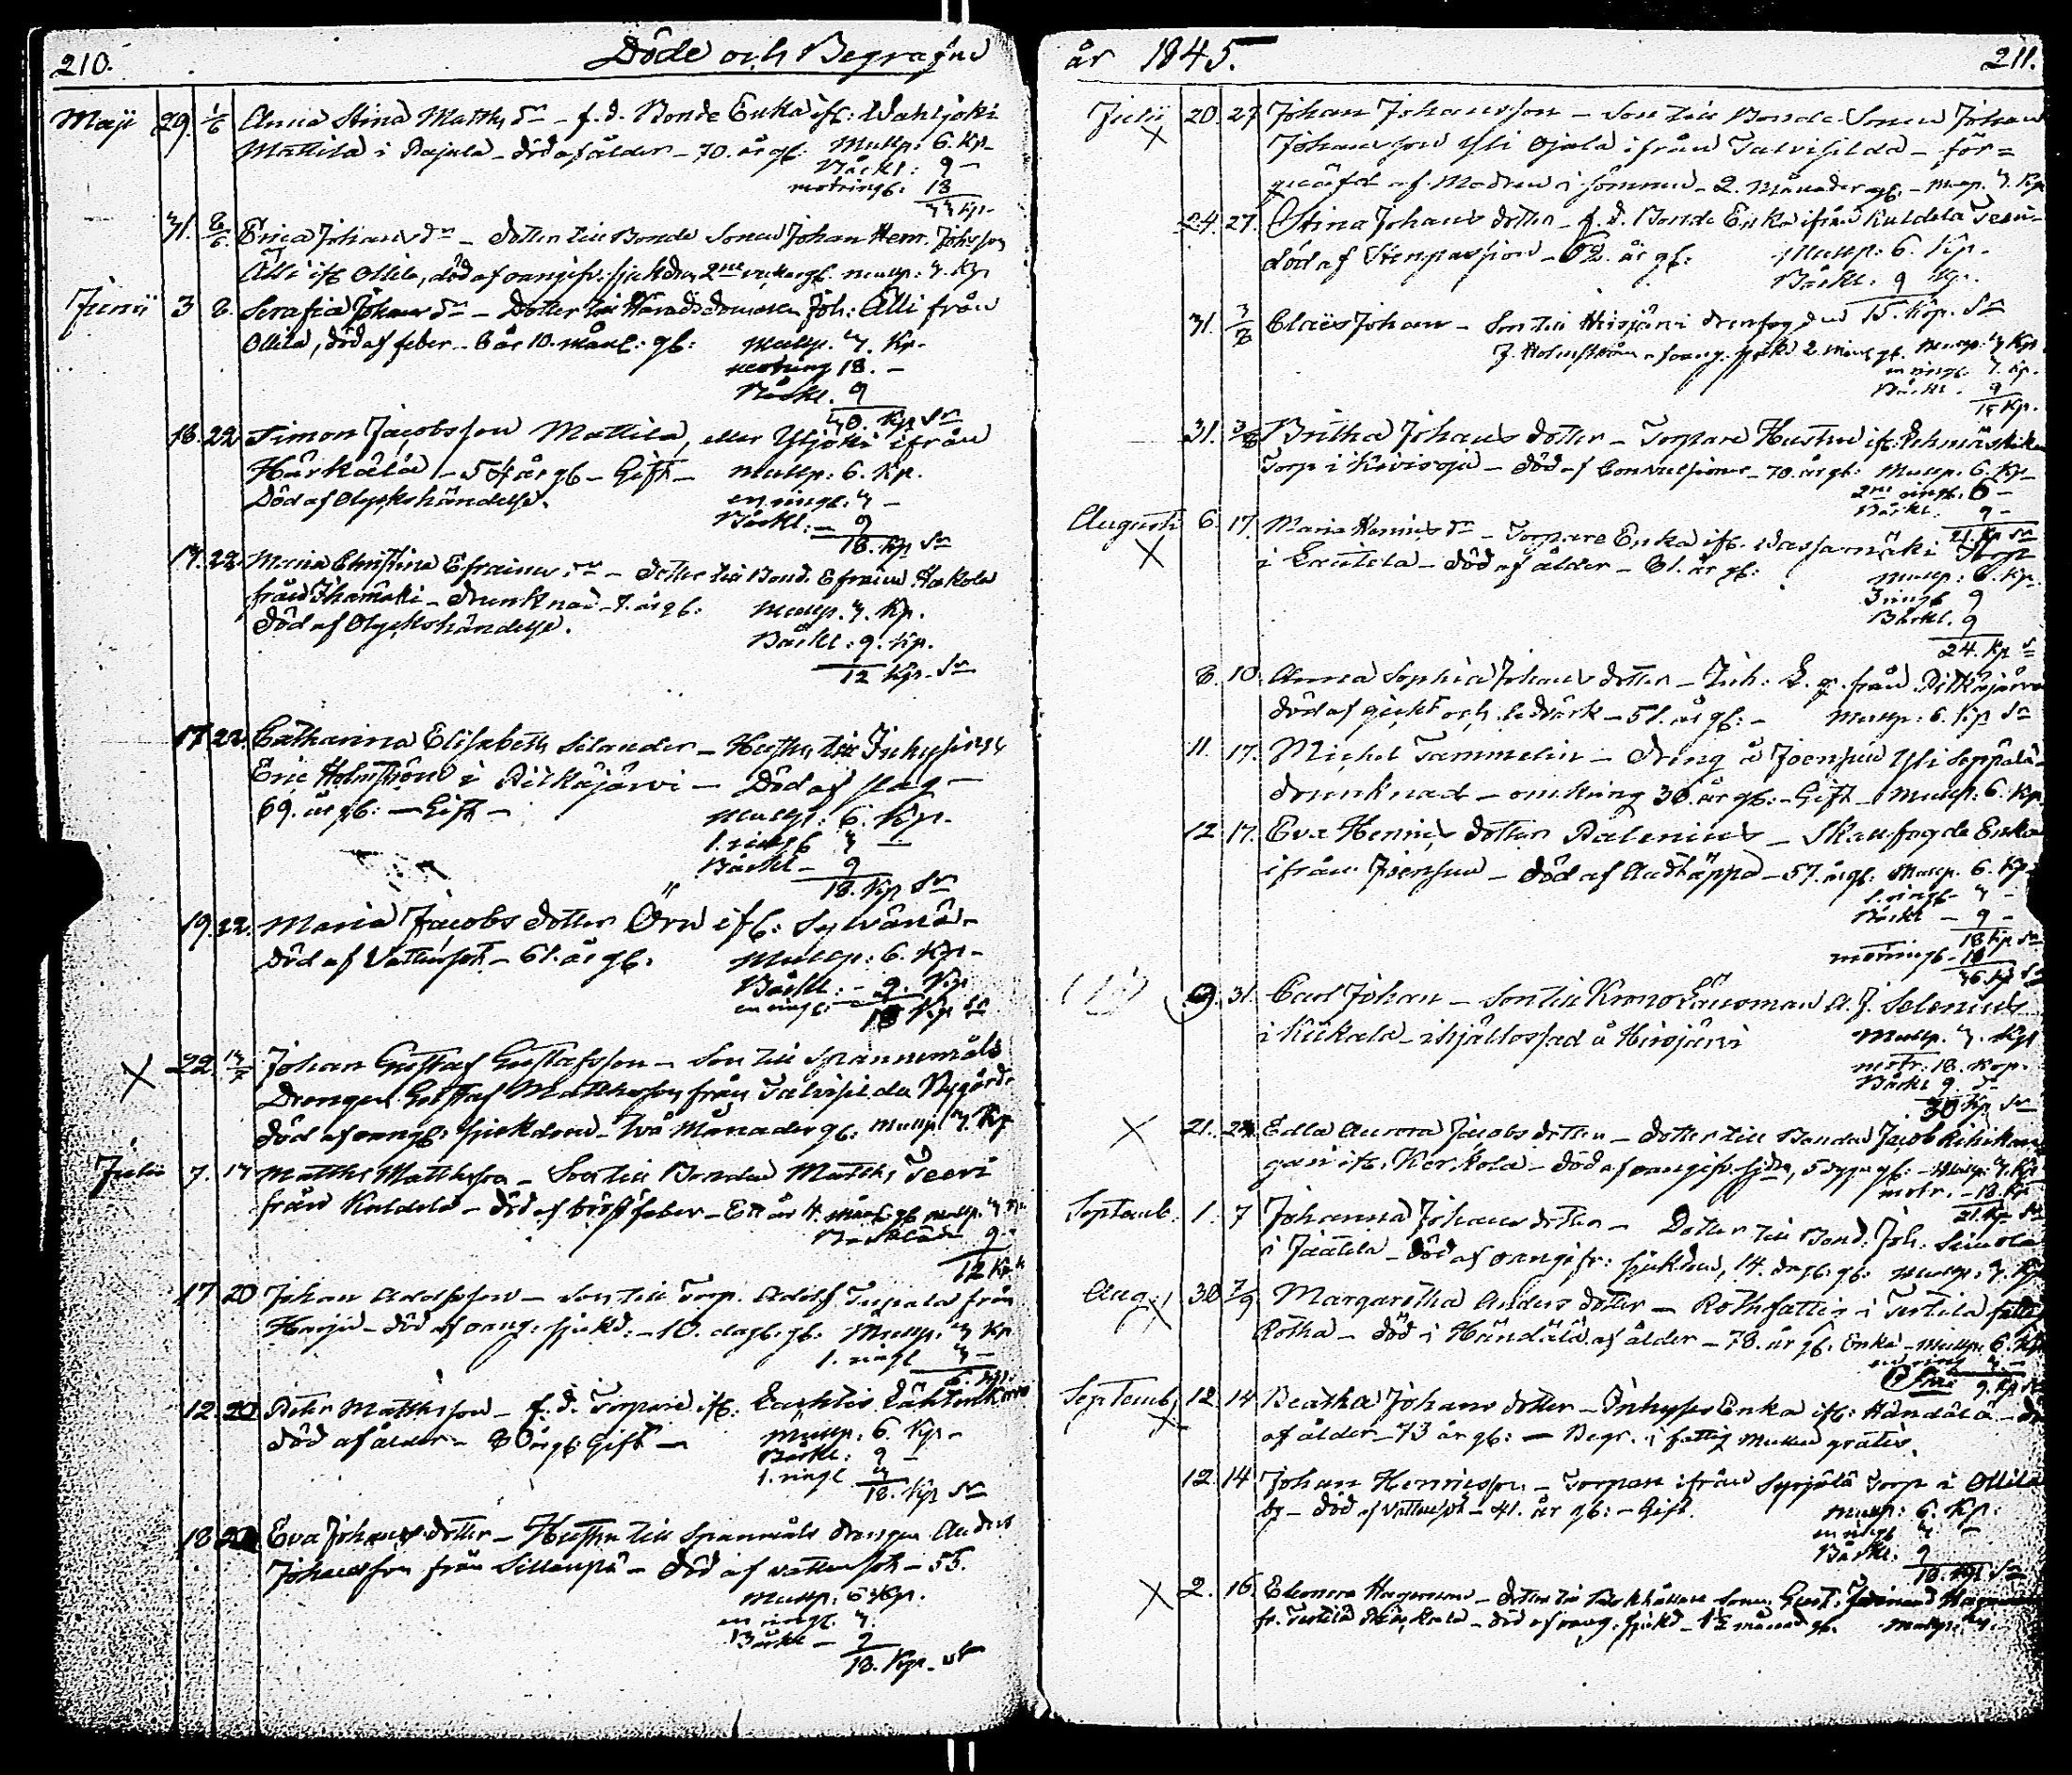 210.
Döde och Begrafne
Maji 29 1/6 Anna Stina Matths dr - f. d. Bonde Enka ifr: Wahljoki
Mattila i Rajala - död af ålder - 70. år gl: Mullp: 6. Kp
Bårkl: 9 -
motringl: 18
33 Kp.
31. 8/6. Erica Johans dr - Dotter till Bonde Sonen Johan Henr. Johsson
Älli ifr Ollila, död af oangifv: sjukdom, 2ne veckor gl. mullp: 3. Kp
Junii 3 8. Serafia Johans dr - Dotter till Häradsdomaren Joh: Älli från
Ollila, död af feber - 8 år 10. mån: gl: Mullp. 3. Kp.
motring 18. -
Bårkl. 9
30. Kp Sr
16. 22 Simon Jacobsson Mattila, eller Ylijoki ifrån
Härkälä - 54 år gl - Gift - Mullp: 6. Kp.
Död af Olyckshändelse. en ringl: 3 -
Bårkl: - 9
18. Kp Sr
17. 22. Maria Christina Efraims dr - dotter till Bond. Efraim Hakola
från Ihamäki - Drunknad - 7. år gl: Mullp. 3. Kp.
Död af Olyckshändelse. Bårkl: 9. Kp.
12 Kp. Sr
17 22. Catharina Elisabeth Selander - Hustru till Inhysing
Eric Holmström i Pitkäjärvi - Död af slag -
69. år gl: - Gift - Mullp: 6. Kp.
1. ringl 3 -
Bårkl - 9
18. Kp Sr
19. 22. Maria Jacobs dotter Örn ifr: Sylvänä -
Död af Vattusot - 61. år gl: Mullp: 6. Kp -
Bårkl: - 9. Kp
en ringl: -
18 Kp Sr
X 22. 13/7 Johan Gustaf Gustafsson - Son till Spannemåls
Drengen Gustaf Mattsson från Talvisilda Nygård
död af oangf: sjukdom - två Månader gl: Mullp 3. Kp
Julii 7. 13 Matths Mattsson - Son till Bonden Matths Teeri
från Kuldela - Död af bröstfeber - Ett år 4. mån: gl mullp. 3 Kp.
Bårkläd 9 -
12 Kp.
17 20 Johan Adolfsson - Son till Torp. Adolf Tupala från
Harju - död af oang. sjukd: - 10. dagl. gl: Mullp. 3 Kp
1. ringl 3 -
6. Kp.
12. 20 Petter Mattsson - f. d. Torpare ifr:
död af ålder - 80 år gl: Gift - Mullp: 6. Kp -
Bårkl: 9 -
1. ringl 3
18. Kp Sr
18 20 Eva Johans dotter - Hustru till Spanmåls drengen Anders
Johansson från Sillanpä - Död af vattusot - 55.
Mullp: 6 Kp.
en ringl. 3.
Bårkl - 9
18. Kp. Sr
år 1845.
211.
Julii X 20. 27 Johan Johansson - Son till Bonde Sonen Johan
Johansson Yli Ojala ifrån Talvisilda - för=
qväfd af Modren i sömnen - 2. Månader gl. - Mullp. 3. Kp
24. 27. Stina Johans dotter - f. d. Bonde Enka ifrån Kuldela Teeri -
död af Stenpassion - 62. år gl: Mullp: 6. Kp -
Bårkl. 9 Kp.
15. Kop. Sr
31. 3/8 Claës Johan - Son till Hirsjärvi drenfogden
J. Holmström - oang. sjukd 2. mån gl. Mullp: 3 Kp
en ringl. 3. Kp.
Bårkl. 9
15 Kp.
31. 3/8 Britha Johans dotter - Torpare Hustru ifr:
Torp i Kivisoja - död af Convulsioner - 70. år gl: Mullp: 6. Kp -
2ne ringl. 6 -
Bårkl. 9 -
21. Kp Sr
Augusti X 6. 17. Maria Henrics dr - Torpare Enka ifr. Wassarnäki Torp
i Lautela - död af ålder - 81. år gl: Mullp: 6. Kp.
3 ringl 9
Bårkl. 9
24. Kp Sr
8. 10. Anna Sophia Johans dotter - Inh: E. q. från Pitkäjärvi
död af gickt och ledvärk - 51. år gl: - Mullp: 6. Kp Sr
11. 17. Michel Tammelin - dreng å Joensuu Yli Seppälä -
drunknad - omkring 36. år gl: - Gift - Mullp: 6. Kp.
12 17. Eva Henrics dotter Palenius - Skallfogde Enka
ifrån Joensuu - död af Andtäppa - 57. år gl: Mullp. 6. Kp -
1. ringl - 3 -
Bårkl - 9 -
18 Kp Sr
motringl - 18
36 Kp Sr
9. 31. Carl Johan - Son till Krono Länsman A. J. Selenius
i Kiikala - ihjälkossad å Hirsjärvi Mullp. 3. Kp
motr: 18. Kop.
Bårkl 9. Sr
30 Kp Sr
X 21. 24. Edla Aurora Jacobs dotter - dotter till Bonden Jacob
ifr. Kerkola - död af oangifv. sjdm, 5 dygn gl: - Mullp: 3. Kp
motr. - 18. Kp
21. Kp Sr
Septemb: 1. 7 Johanna Johans dotter - Dotter till Bond: Joh. Simola
i Jäätelä - död af oangifv: sjukdom, 14. dagl. gl: Mullp: 3. Kp
Aug: X 30 7/9 Margaretha Anders dotter - Rothfattig i Tertilä fattig
Rotha - död i Händälä af ålder - 78. år gl: Enka - Mullp. 6. Kp
en ring 3 -
9. Kp Sr
Septemb: X 12. 14 Beatha Johans dotter - Inhyses Enka ifr: Händälä - dö
af ålder - 73 år gl: - Begr. i fattig Mullen gratis.
12. 14 Johan Henricsson - Torpare ifrån Syrjälä Torp i Ollila
by - Död af Vattusot - 41. år gl: - Gift. Mullp: 6. Kp.
en ringl 3 -
Bårkl. 9
18. Kp Sr
X 2. 16. Eleonora Hagerman - dotter till Sonen Gust: Ferdinand
fr. Tertilä - död af oang. sjukd - 1 1/2 månad gl. Mullp: 3.